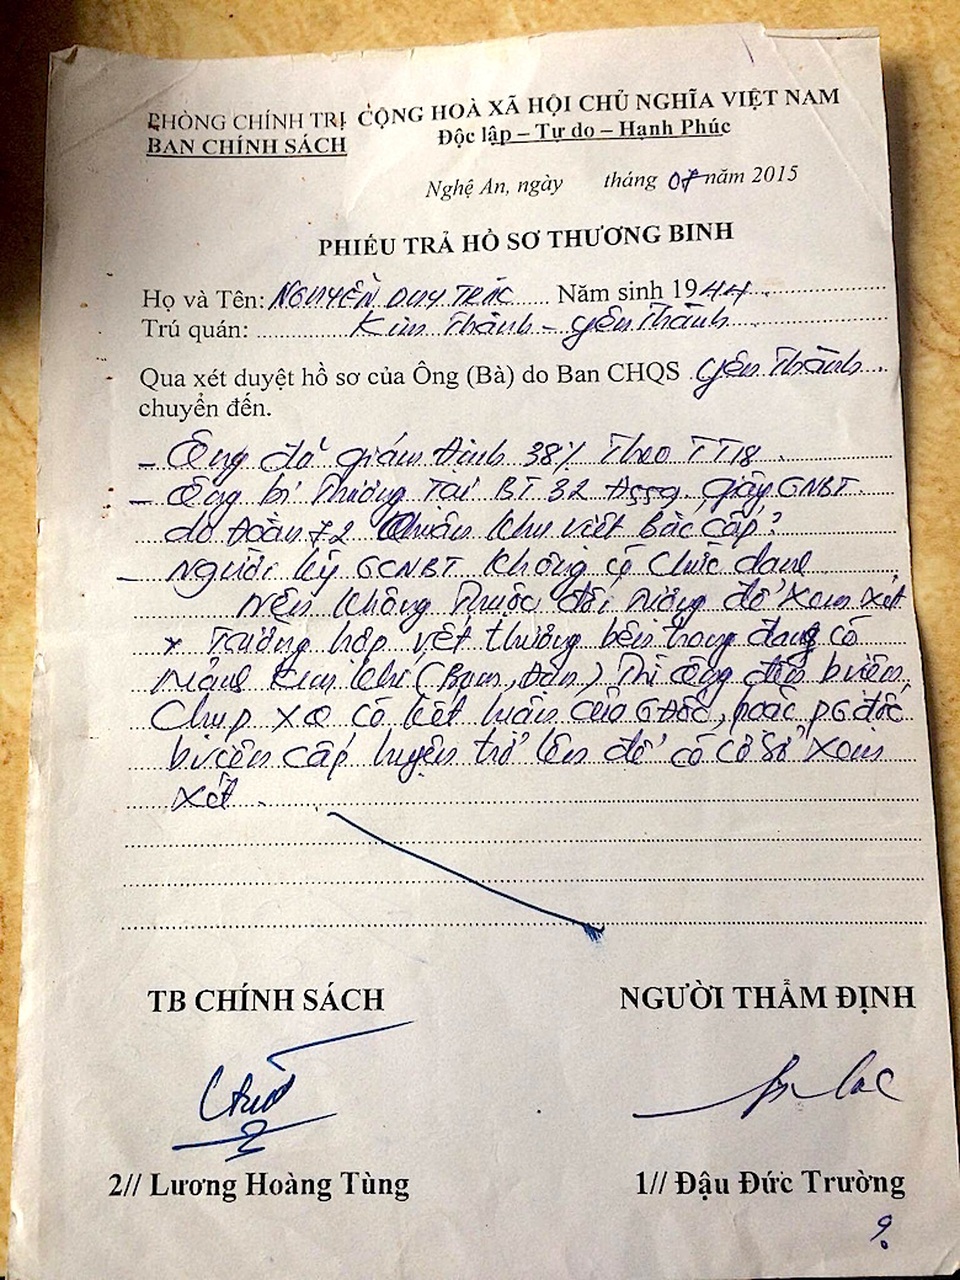 PHÒNG CHÍNH TRỊ CỘNG HOÀ XÃ HỘI CHỦ NGHĨA VIỆT NAM
BAN CHÍNH SÁCH Độc lập – Tự do – Hạnh Phúc
Nghệ An, ngày tháng 07 năm 2015
PHIẾU TRẢ HỒ SƠ THƯƠNG BINH
Họ và Tên: NGUYỄN DUY TRÁC Năm sinh 1944
Trú quán: Kim Thành – Yên Thành
Qua xét duyệt hồ sơ của Ông (Bà) do Ban CHQS Yên Thành
chuyển đến.
– Ông đã giám định 38% Theo TT18
– Ông bị Thương Tại BT 32 giấy CNBT
do Đoàn 72 Quân khu viết Bắc cấp?
– Người ký GCNBT không có chức danh
Nên không thuộc đối tượng để xem xét
* Trường hợp vết thương bên trong đang có
mảnh kim khí (Bom, Đạn) Thì ông đến b.viện
Chụp XQ có kết luận của G.đốc, hoặc PG đốc
b.viện cấp huyện trở lên để có cơ sở xem
xét
TB CHÍNH SÁCH NGƯỜI THẨM ĐỊNH
2// Lương Hoàng Tùng 1// Đậu Đức Trường